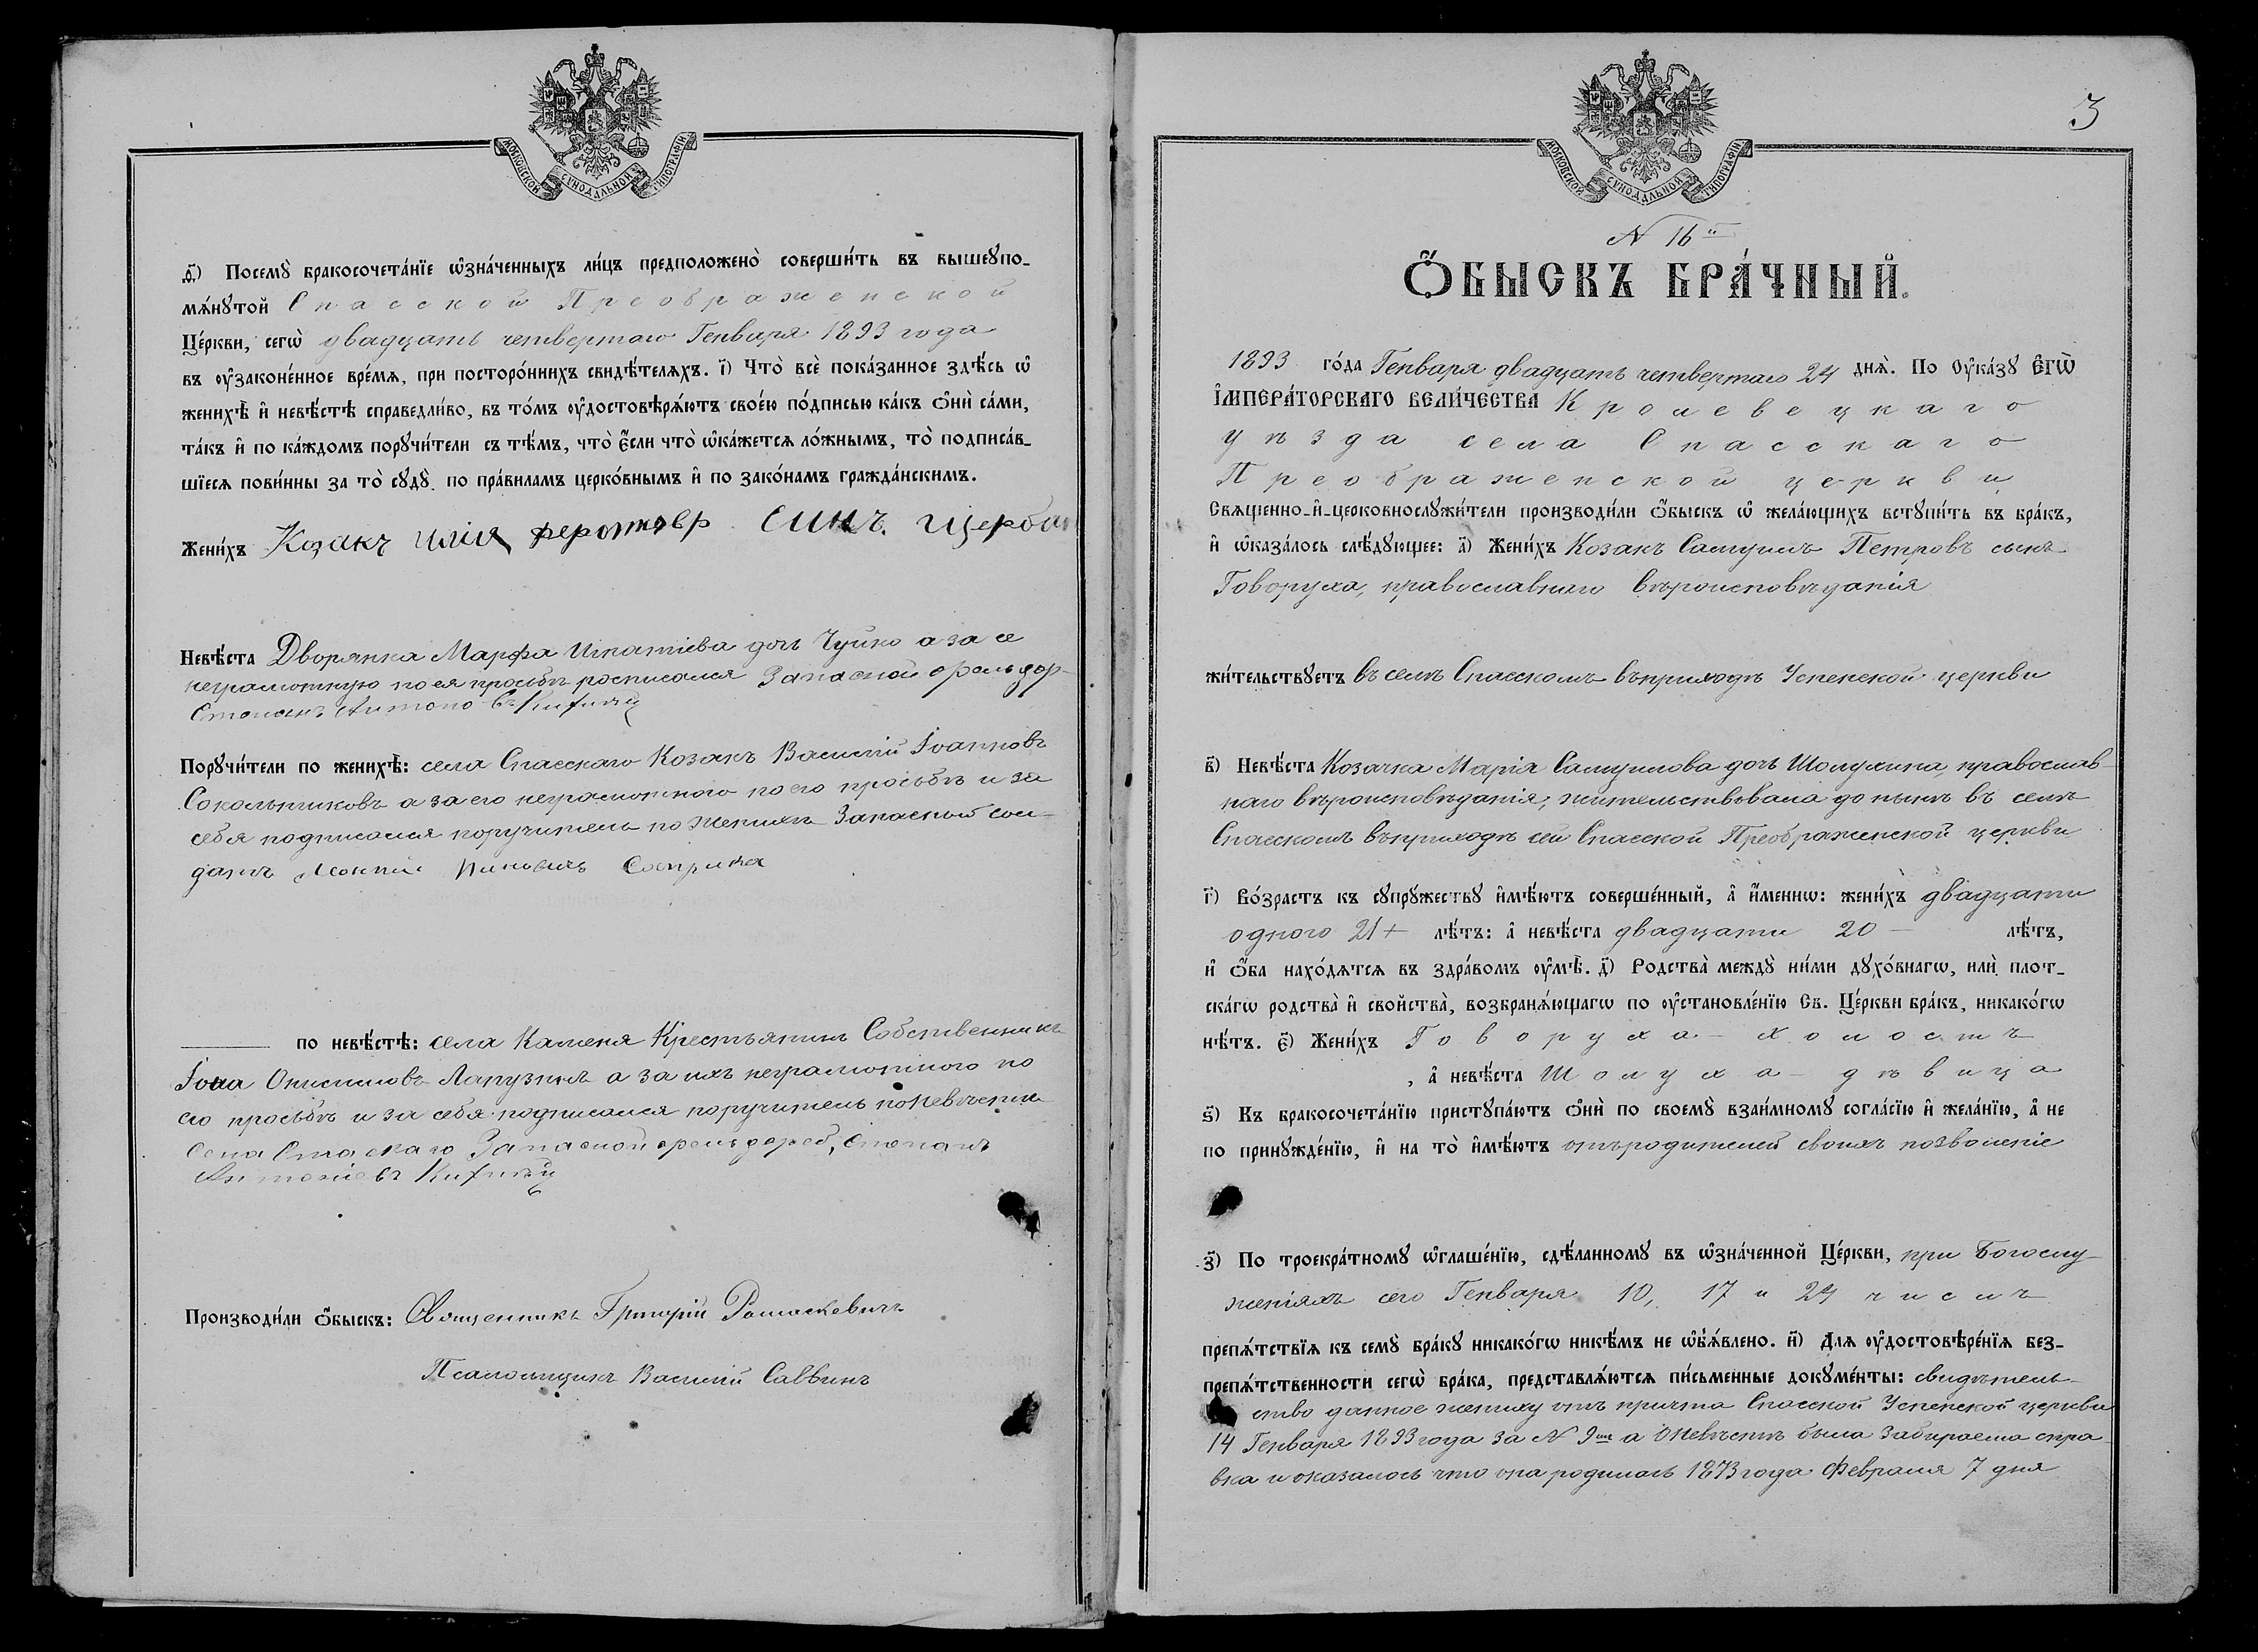 МОСКОВСКОЙ СѴНОДАЛЬНОЙ ТИПОГРАФІИ
ѳ҃) Посемꙋ̀ бракосочета́нїе ѡ҆зна́ченныхъ ли́цъ предположено̀ соверши́ть въ вышеꙋпо-
мѧ́нꙋтой Спасской Преображенской
Це́ркви, сегѡ̀ двадцать четвертаго Генваря 1893 года
въ ᲂу҆законе́нное вре́мѧ, при посторо́ннихъ свидѣ́телѧхъ. і҃) Что̀ всѐ пока́занное здѣ́сь ѡ҆
женихѣ̀ и҆ невѣ́стѣ справедли́во, въ то́мъ ᲂу҆достовѣрѧ́ютъ свое́ю по́дписью ка́къ ѻ҆нѝ са́ми,
та́къ и҆ по ка́ждомъ порꙋчи́тели съ тѣ́мъ, что̀ є҆́сли что̀ ѡ҆ка́жетсѧ ло́жнымъ, то̀ подписа́в-
шїесѧ пови́нны за то̀ сꙋдꙋ̀ по пра́виламъ церко́внымъ и҆ по зако́намъ гражда́нскимъ.
Жени́хъ Козакъ Илія синъ Щербак
Невѣ́ста Дворянка Марфа Игнатіева дочь Чуйко а за ее
неграмотную по ея просьбѣ росписался Запасной фельдфер-
Степанъ Антоно-въ
Порꙋчи́тели по женихѣ̀: села Спасскаго Козакъ Василій Іоанновъ
Сокольниковъ а за его неграмотного по его просьбѣ и за
себя подписался поручитель по женихѣ Запасный сол-
датъ Леонтій
по невѣ́стѣ: села Каменя Крестьянинъ Собственникъ
Іона Онисимовъ Лапузинъ а за ихъ неграмотного по
его просьбѣ и за себя подписался поручитель по невѣстѣ
Села Спаскаго Запасной Степанъ
Антоніевъ
Производи́ли ѻ҆́быскъ: Священникъ Григорій Ромаскевичъ
Псаломщикъ Василій Саввинъ
3
МОСКОВСКОЙ СѴНОДАЛЬНОЙ ТИПОГРАФІИ
N 16й
Ѻ҆́БЫСКЪ БРА́ЧНЫЙ.
1893 го́да Генваря двадцать четвертаго 24 днѧ̀. По Оу҆ка́зꙋ Є҆ГѠ̀
І҆МПЕРА́ТОРСКАГО ВЕЛИ́ЧЕСТВА Кролевецкаго
уѣзда села Спасскаго
Преображенской церкви
Свѧще́нно-и҆-церковнослꙋжи́тели производи́ли ѻ҆́быскъ ѡ҆ жела́ющихъ встꙋпи́ть въ бра́къ,
и҆ ѡ҆каза́лось слѣ́дꙋющее: а҃) Жени́хъ Козакъ Самуилъ Петровъ сынъ
Говоруха, православнаго вѣроисповѣданія
жи́тельствꙋетъ въ селѣ Спасскомъ въ приходѣ Успенской церкви
в҃) Невѣ́ста Козачка Марія Самуилова дочь Шолухина, православ-
наго вѣроисповѣданія, жительствовала до нынѣ въ селѣ
Спасскомъ въ приходѣ сей Спасской Преображенской церкви
г҃) Во́зрастъ къ сꙋпрꙋ́жествꙋ и҆мѣ́ютъ соверше́нный, а҆ и҆́меннѡ: жени́хъ двадцати
одного 21+ лѣ́тъ: а҆ невѣ́ста двадцати 20 — лѣ́тъ,
и҆ ѻ҆́ба нахо́дѧтсѧ въ здра́вомъ ᲂу҆мѣ̀. д҃) Родства̀ междꙋ̀ ни́ми дꙋхо́внагѡ, илѝ плот-
ска́гѡ родства̀ и҆ свойства̀, возбранѧ́ющагѡ по ᲂу҆становле́нїю Св. Це́ркви бра́къ, никако́гѡ
нѣ́тъ. є҃) Жени́хъ Говоруха — холостъ
, а҆ невѣ́ста Шолуха — дѣвица
ѕ҃) Къ бракосочета́нїю пристꙋпа́ютъ ѻ҆нѝ по своемꙋ̀ взаи́мномꙋ согла́сїю и҆ жела́нїю, а҆ не
по принꙋжде́нїю, и҆ на то̀ и҆мѣ́ютъ отъ родителей своихъ позволеніе
з҃) По троекра́тномꙋ ѡ҆глаше́нїю, сдѣ́ланномꙋ въ ѡ҆зна́ченной Це́ркви, при Богослу-
женіяхъ сего Генваря 10, 17 и 24 числъ
препѧ́тствїѧ къ семꙋ̀ бра́кꙋ никако́гѡ никѣ́мъ не ѡ҆б̾ѧ́влено. и҃) Длѧ ᲂу҆достовѣре́нїѧ без-
препѧ́тственности сегѡ̀ бра́ка, представлѧ́ютсѧ пи́сьменные докꙋме́нты: свидѣтель-
ство данное жениху отъ причта Спасской Успенской церкви
14 Генваря 1893 года за N 9мъ а о невѣстѣ была забираема спра
вка и оказалось что она родилась 1873 года Февраля 7 дня